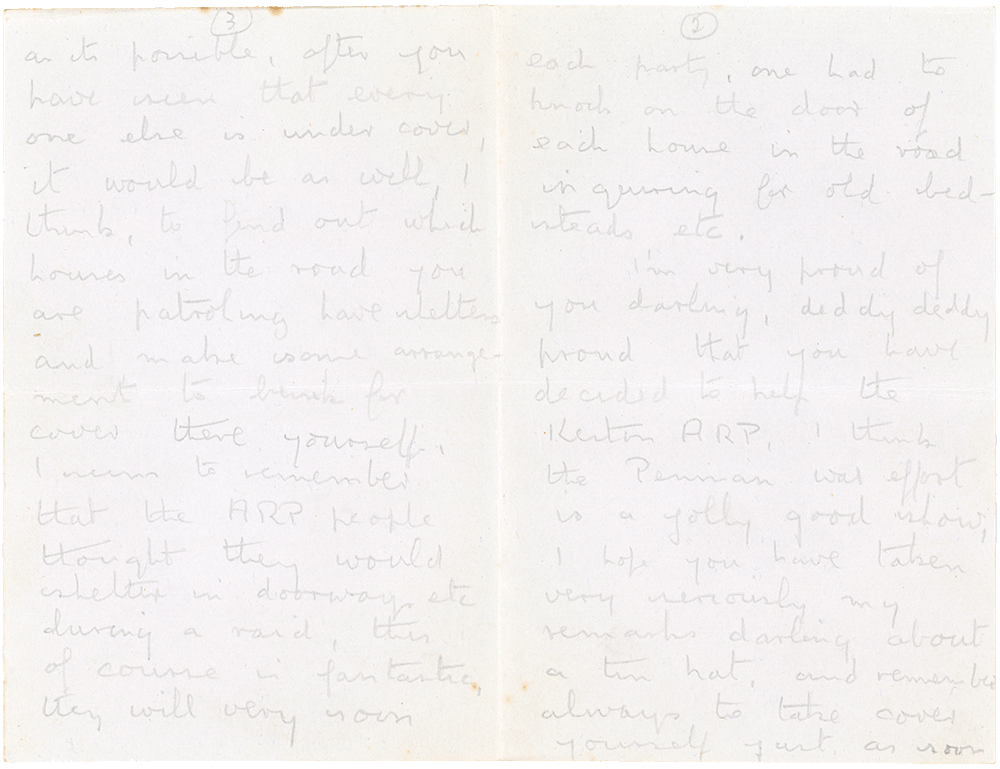 ②
each party, one had to
knock on the door of
each house in the road
inquiring for old bed-
steads etc.
I'm very proud of
you darling, deddy deddy
proud that you have
decided to help the
Keston ARP. I think
the Penman war effort
is a jolly good show,
I hope you have taken
very seriously my
remarks darling about
a tin hat, and remember
always to take cover
yourself just as soon
③
as its possible, after you
have seen that every
one else is under cover,
it would be as well, I
think, to find out which
houses in the road you
are patroling have shelters
and make some arrange-
ment to bunk for
cover there yourself.
I seem to remember
that the ARP people
thought they would
shelter in doorways etc
during a raid, this
of course is fantastic,
they will very soon